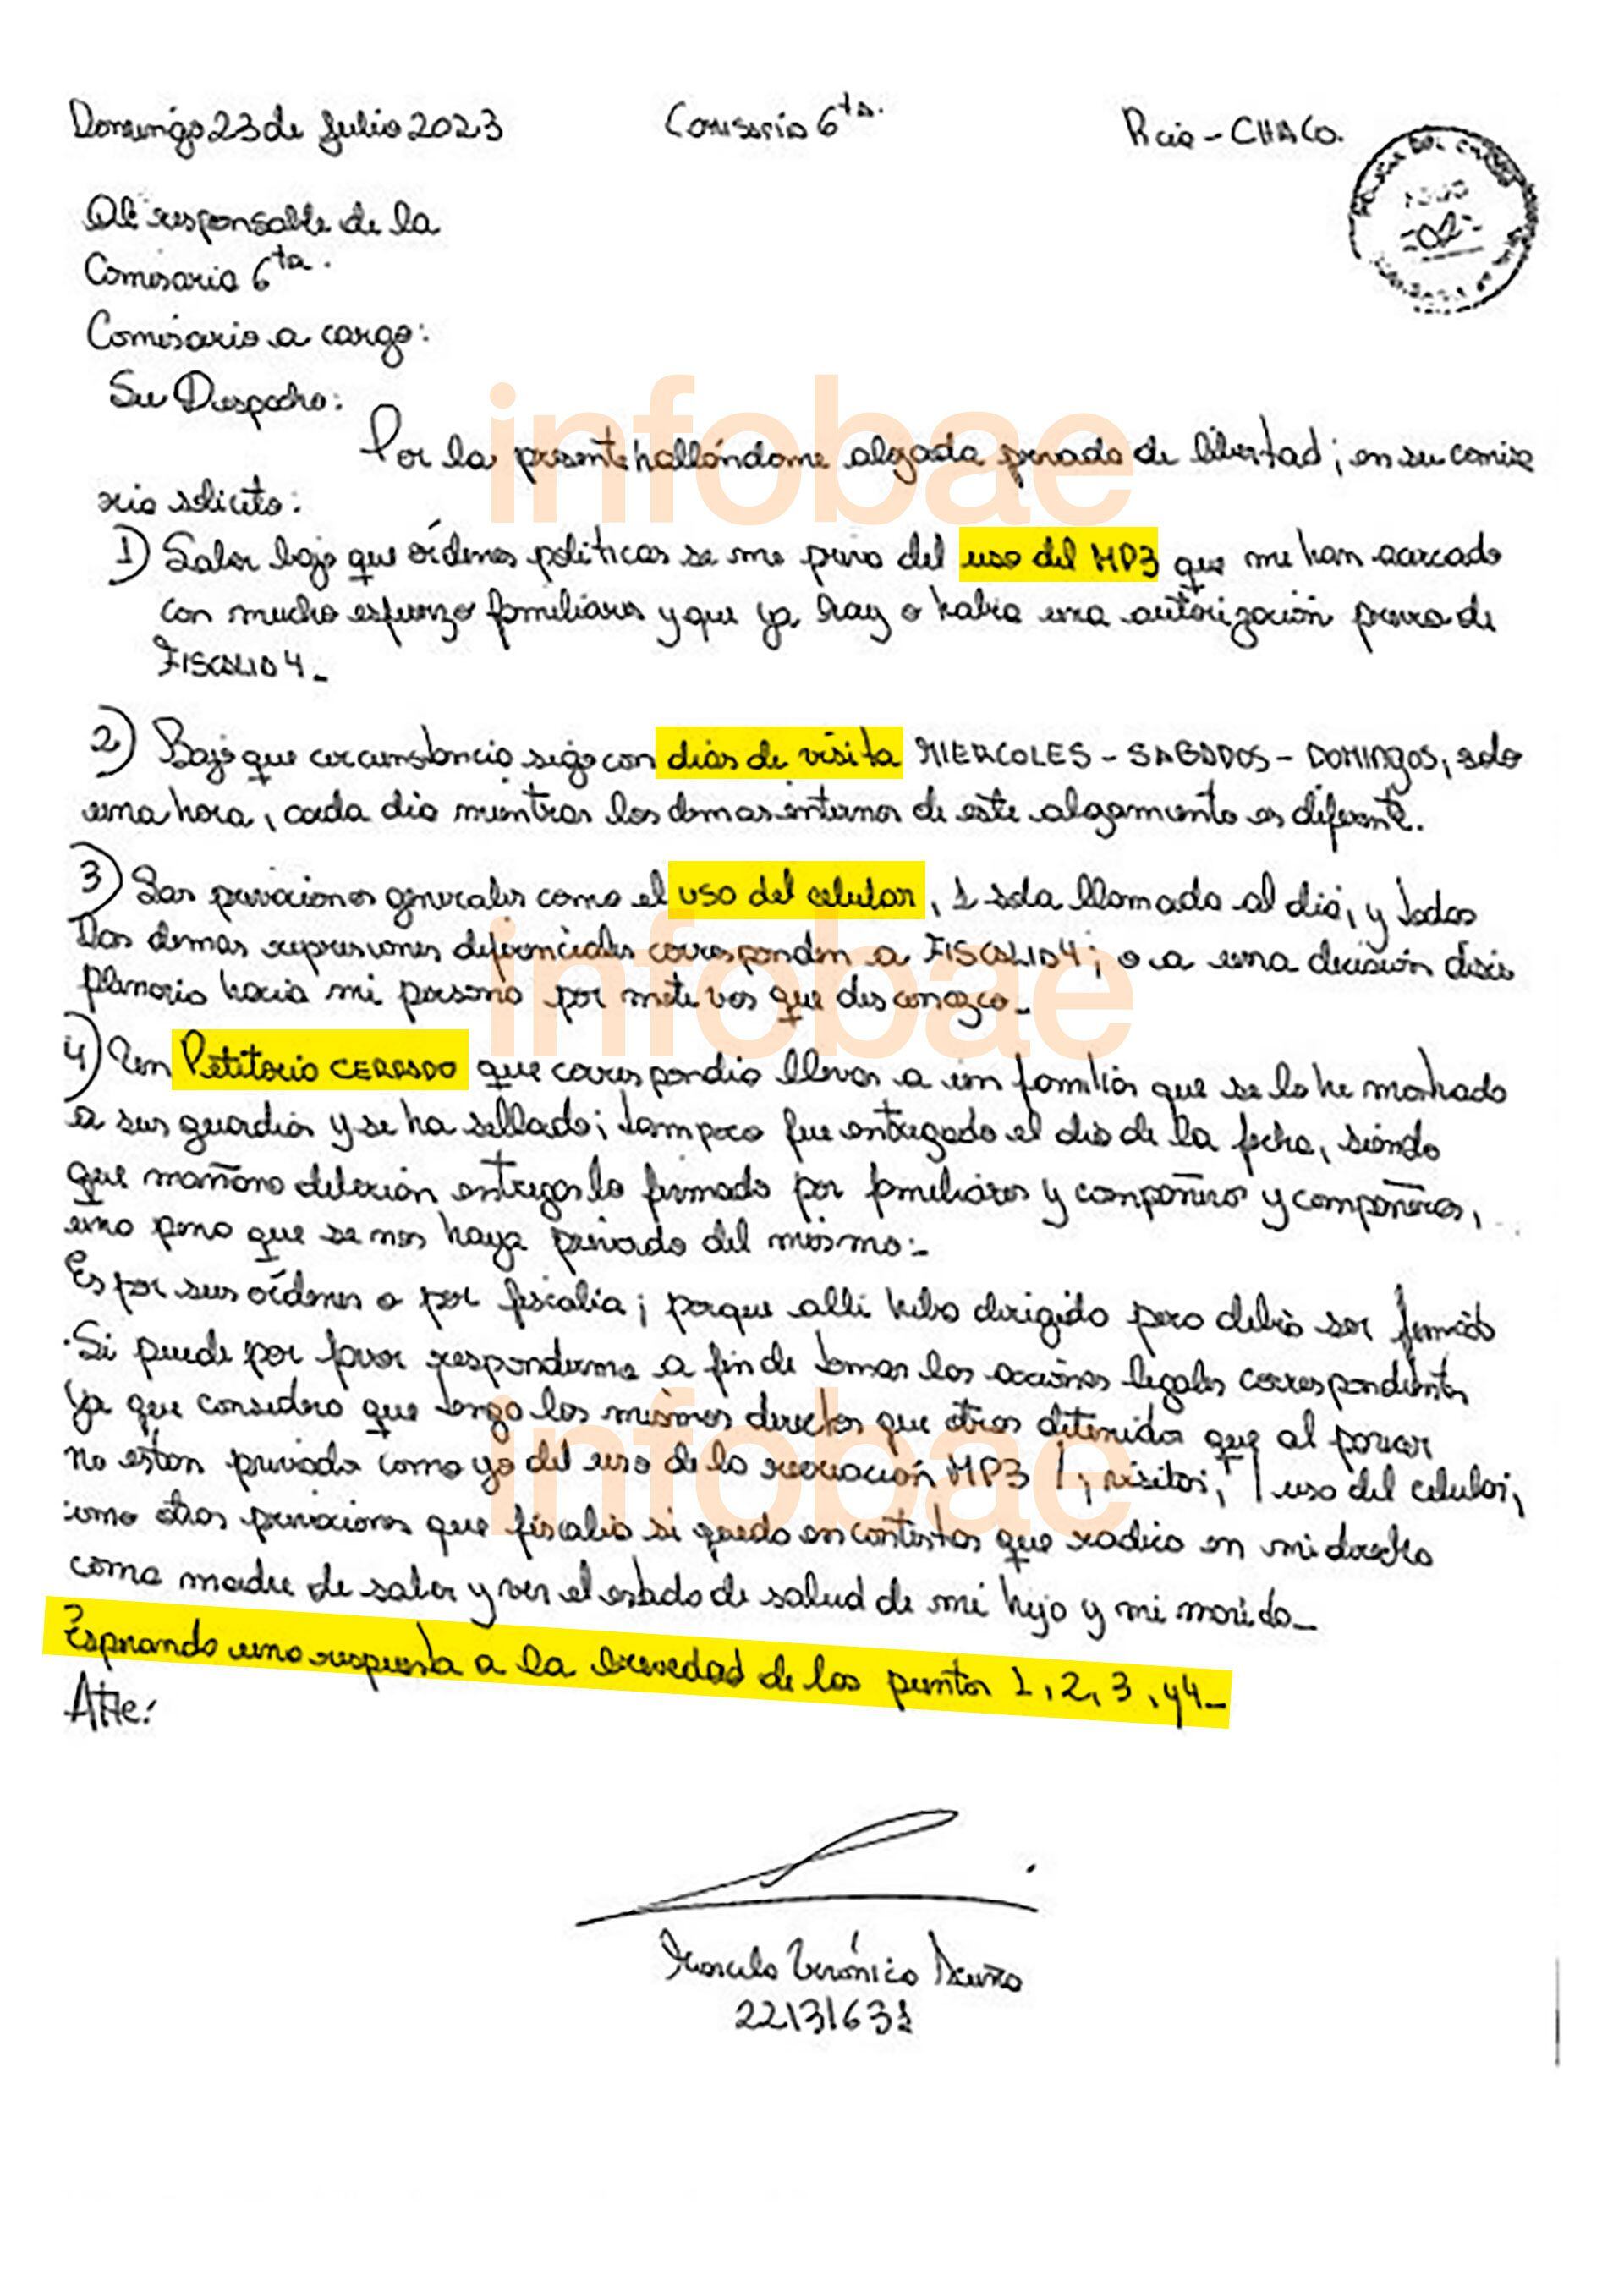 Domingo 23 de Julio 2023 Comisaría 6ta. Rcia - CHACO.
Al responsable de la
Comisaria 6ta.
Comisario a cargo:
Su Despacho:
Por la presente hallándome alojada privada de libertad; en su comisa
ria solicito:
1) Saber bajo que órdenes politicas se me priva del uso del MP3 que me han acercado
con mucho esfuerzo familiares y que ya hay o habia una autorización previa de
FISCALIA 4_
2) Bajo que circunstancia sigo con dias de visita MIERCOLES - SABADOS - DOMINGOS, solo
una hora, cada dia mientras los demas internos de este alojamiento es diferente.
3) Las privaciones generales como el uso del celular, 1 sola llamada al dia, y todas
las demas represiones diferenciales corresponden a FISCALIA 4; o a una decisión disci
plinaria hacia mi persona por motivos que desconozco_
4) Un Petitorio CERRADO que correspondia llevar a un familiar que se lo he mostrado
a sus guardias y se ha sellado; tampoco fue entregado el dia de la fecha, siendo
que mañana deberian entregarlo firmado por familiares y compañeros y compañeras,
una pena que se nos haya privado del mismo:-
Es por sus órdenes o por fiscalia; porque alli iba dirigido pero debia ser firmado
.Si puede por favor responderme a fin de tomar las acciones legales correspondientes
Ya que considero que tengo los mismos derechos que otras detenidas que al parecer
no estan privada como yo del uso de la recreación MP3 |, visitas, | uso del celular,
como otras privaciones que fiscalia si quedo en contestar que radica en mi derecho
como madre de saber y ver el estado de salud de mi hijo y mi marido_
Esperando una respuesta a la brevedad de los puntos 1, 2, 3, y 4_
Atte:
Marcela Verónica Acuña
22131631
infobae
infobae
infobae